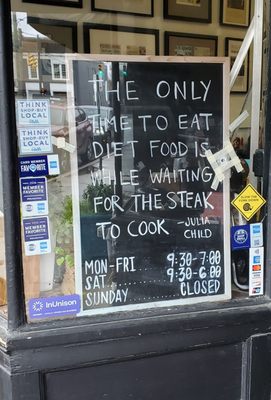 THE ONLY
TIME TO EAT
DIET FOOD IS
WHILE WAITING
FOR THE STEAK
TO COOK - JULIA
CHILD
MON-FRI 9:30-7:00
SAT 9:30-6:00
SUNDAY CLOSED
THINK
SHOP·BUY
LOCAL
THINK
SHOP·BUY
LOCAL
FAVORITE
MEMBER
FAVORITE
MEMBER
FAVORITE
InUnison